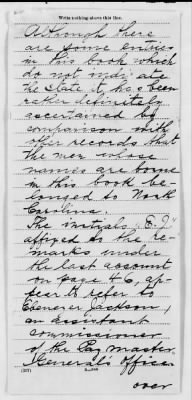 Write nothing above this line.
Although there
are some entries
in this book which
do not indicate
the State it has been
rather definitely
ascertained by
comparison with
other records that
the men whose
names are borne
in this book be-
longed to North
Carolina.
The initials "E.J."
affixed to the re-
marks under
the last account
on page 46, ap-
pear to refer to
Ebenezer Jackson,
an assistant
commissioner
of the Pay Master
General's Office.
over